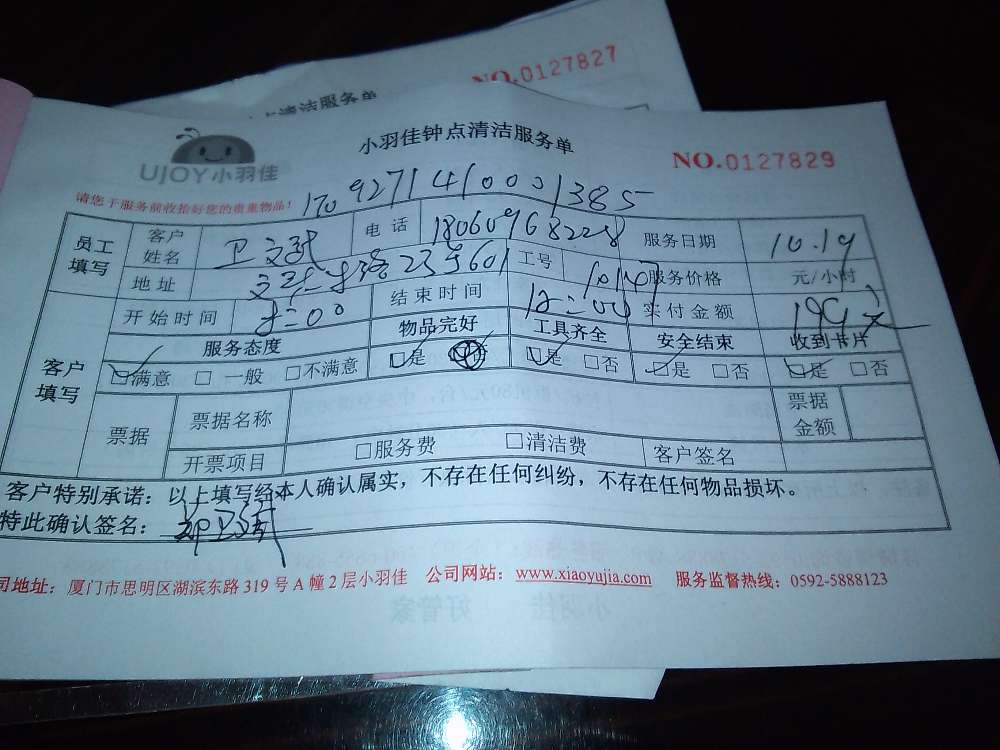 NO.0127827
点清洁服务单
UJOY小羽佳
小羽佳钟点清洁服务单
NO.0127829
请您于服务前收拾好您的贵重物品！
1709271410001385
员工填写 客户姓名 卫文武 电话 18060968228 服务日期 10.19
地址 235601 工号 服务价格 元/小时
开始时间 结束时间 12:00 实付金额
客户填写 服务态度 物品完好 工具齐全 安全结束 收到卡片
□满意 □一般 □不满意 □是 □是 □否 □是 □否 □是 □否
票据 票据名称 票据金额
开票项目 □服务费 □清洁费 客户签名
客户特别承诺：以上填写经本人确认属实，不存在任何纠纷，不存在任何物品损坏。
特此确认签名：
司地址：厦门市思明区湖滨东路319号A幢2层小羽佳 公司网站：www.xiaoyujia.com 服务监督热线：0592-5888123